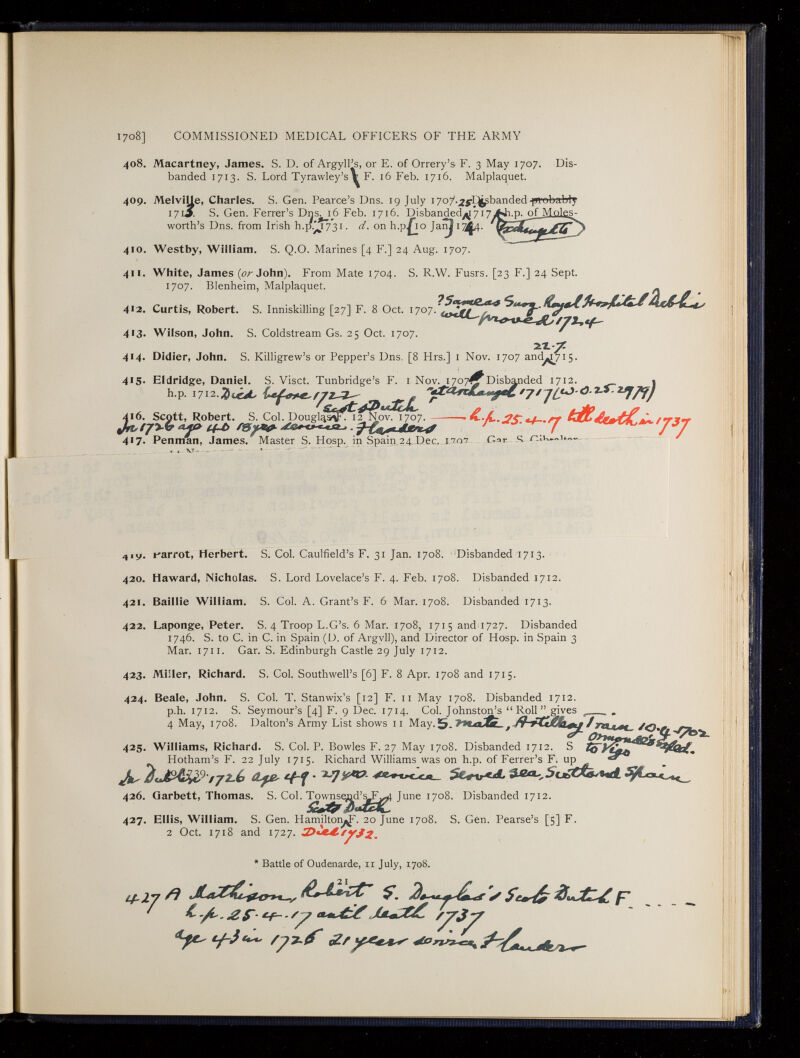 1708] COMMISSIONED MEDICAL OFFICERS OF THE ARMY
408. Macartney, James. S. D. of Argyll's, or E. of Orrery's F. 3 May 1707. Dis-
banded 1713. S. Lord Tyrawley's F. 16 Feb. 1716. Malplaquet.
409. Melville, Charles. S. Gen. Pearce's Dns. 19 July 1707. 25 Disbanded probably
1713. S. Gen. Ferrer's Dns. 16 Feb. 1716. Disbanded 1717 h.p. of Moles-
worth's Dns. from Irish h.p. 1731. d. on h.p. [10 Jan] 1744. Exchanged to
410. Westby, William. S. Q.O. Marines [4 F.] 24 Aug. 1707.
411. White, James (or John). From Mate 1704. S. R.W. Fusrs. [23 F.] 24 Sept.
1707. Blenheim, Malplaquet.
?Same as Surg. Royal Hospital Dublin
412. Curtis, Robert. S. Inniskilling [27] F. 8 Oct. 1707. will proved 1724
413. Wilson, John. S. Coldstream Gs. 25 Oct. 1707.
22.7.
414. Didier, John. S. Killigrew's or Pepper's Dns. [8 Hrs.] 1 Nov. 1707 and 1715.
415. Eldridge, Daniel. S. Visct. Tunbridge's F. 1 Nov. 1707 Disbanded 1712.
h.p. 1712. Died before 1722 at Archangel 1717 (W.O. 25. 2979)
Scots Dutch
416. Scott, Robert. S. Col. Douglas F. 12 Nov. 1707. h.p. 25.4.17 till death in 1737
In 1726 age 40 18 yrs service. Flanders
417. Penman, James. Master S. Hosp. in Spain 24 Dec. 1707 Gar. S. Gibraltar
419. Parrot, Herbert. S. Col. Caulfield's F. 31 Jan. 1708. Disbanded 1713.
420. Haward, Nicholas. S. Lord Lovelace's F. 4. Feb. 1708. Disbanded 1712.
421. Baillie William. S. Col. A. Grant's F. 6 Mar. 1708. Disbanded 1713.
422. Laponge, Peter. S. 4 Troop L.G's. 6 Mar. 1708, 1715 and 1727. Disbanded
1746. S. to C. in C. in Spain (D. of Argyll), and Director of Hosp. in Spain 3
Mar. 1711. Gar. S. Edinburgh Castle 29 July 1712.
423. Miller, Richard. S. Col. Southwell's [6] F. 8 Apr. 1708 and 1715.
424. Beale, John. S. Col. T. Stanwix's [12] F. 11 May 1708. Disbanded 1712.
p.h. 1712. S. Seymour's [4] F. 9 Dec. 1714. Col. Johnston's "Roll" gives
4 May, 1708. Dalton's Army List shows 11 May. S. mate, Artillery Train 10.4.1702
Ormonde's Exped. to Vigo
425. Williams, Richard. S. Col. P. Bowles F. 27 May 1708. Disbanded 1712. S
Hotham's F. 22 July 1715. Richard Williams was on h.p. of Ferrer's F. up
In Dublin 1726 age 49. 27 yrs. service Served Sea, Scotland Spain
426. Garbett, Thomas. S. Col. Townsend's F. 4 June 1708. Disbanded 1712.
Scots Dutch
427. Ellis, William. S. Gen. Hamilton F. 20 June 1708. S. Gen. Pearse's [5] F.
2 Oct. 1718 and 1727. Died 1732.
* Battle of Oudenarde, 11 July, 1708.
21
427 A Mathison, Robert S. Douglas's Scots Dutch F.
h.p. 25.4.17 until death 1737
age 43 in 1726 21 years service, Flanders